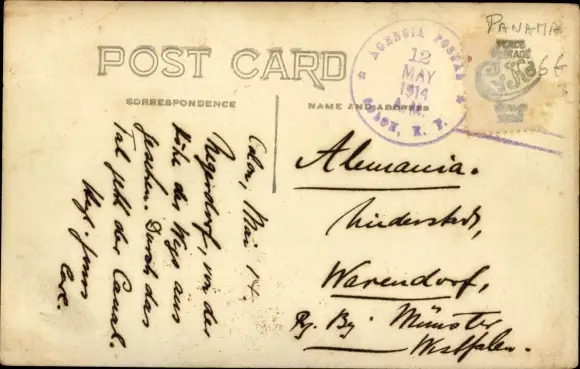 PANAMA
66
POST CARD
CORRESPONDENCE
NAME AND ADDRESS
AGENCIA POSTAL
12
MAY
1914
A.M.
COLON, R. P.
PLACE
POSTAGE
Colon, Mai 14.
Negerdorf, von der
Höhe des Wegs aus
gesehen. Durch das
Tal geht der Canal.
Hrzl. Gruss
Carl.
Alemania.
Niederstadt,
Warendorf,
Rg. Bz. Münster
Westfalen.